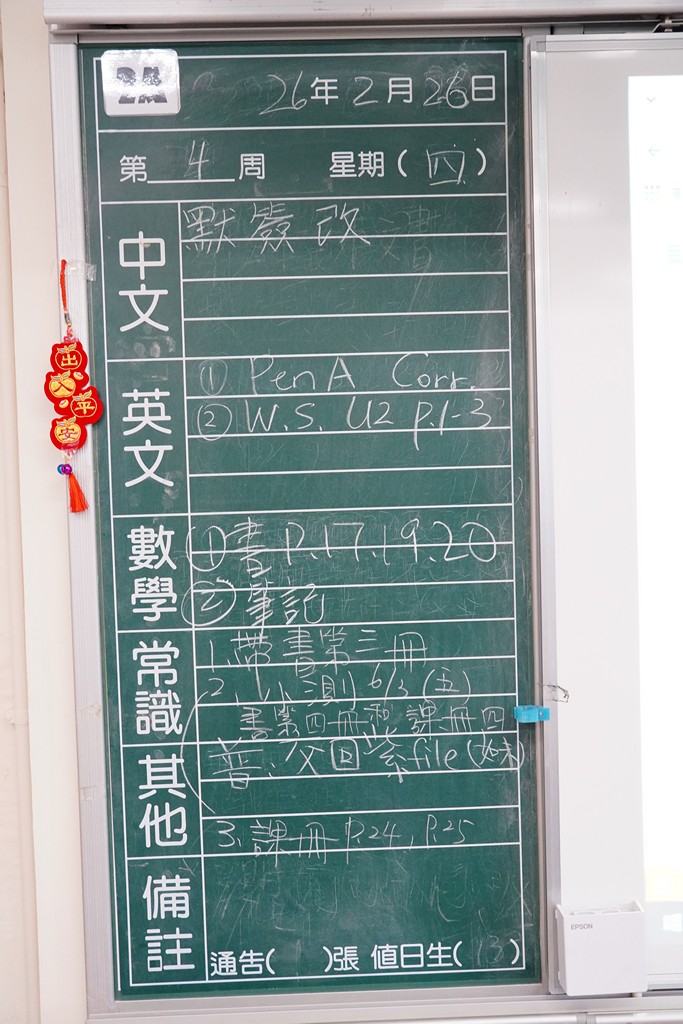 2A
26年2月26日
第4周 星期(四)
中文
默簽改
英文
① Pen A Corr.
② W.S. U2 p.1-3
數學
① 書 P.17.19.20
② 筆記
常識
1. 帶書第三冊
2. 小測 6/3 (五)
書第四冊和課冊四
其他
普: 交回紫file(姝)
3. 課冊 P.24, P.25
備註
通告( )張 值日生(13)
出
入
平
安
EPSON